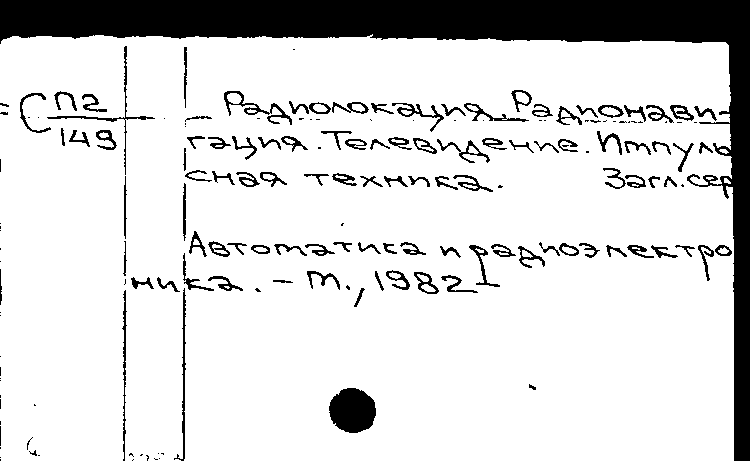 С П2
149
Радиолокация. Радионави-
гация. Телевидение. Импуль
сная техника. Загл. сер
Автоматика и радиоэлектро
ника. – М., 1982 –